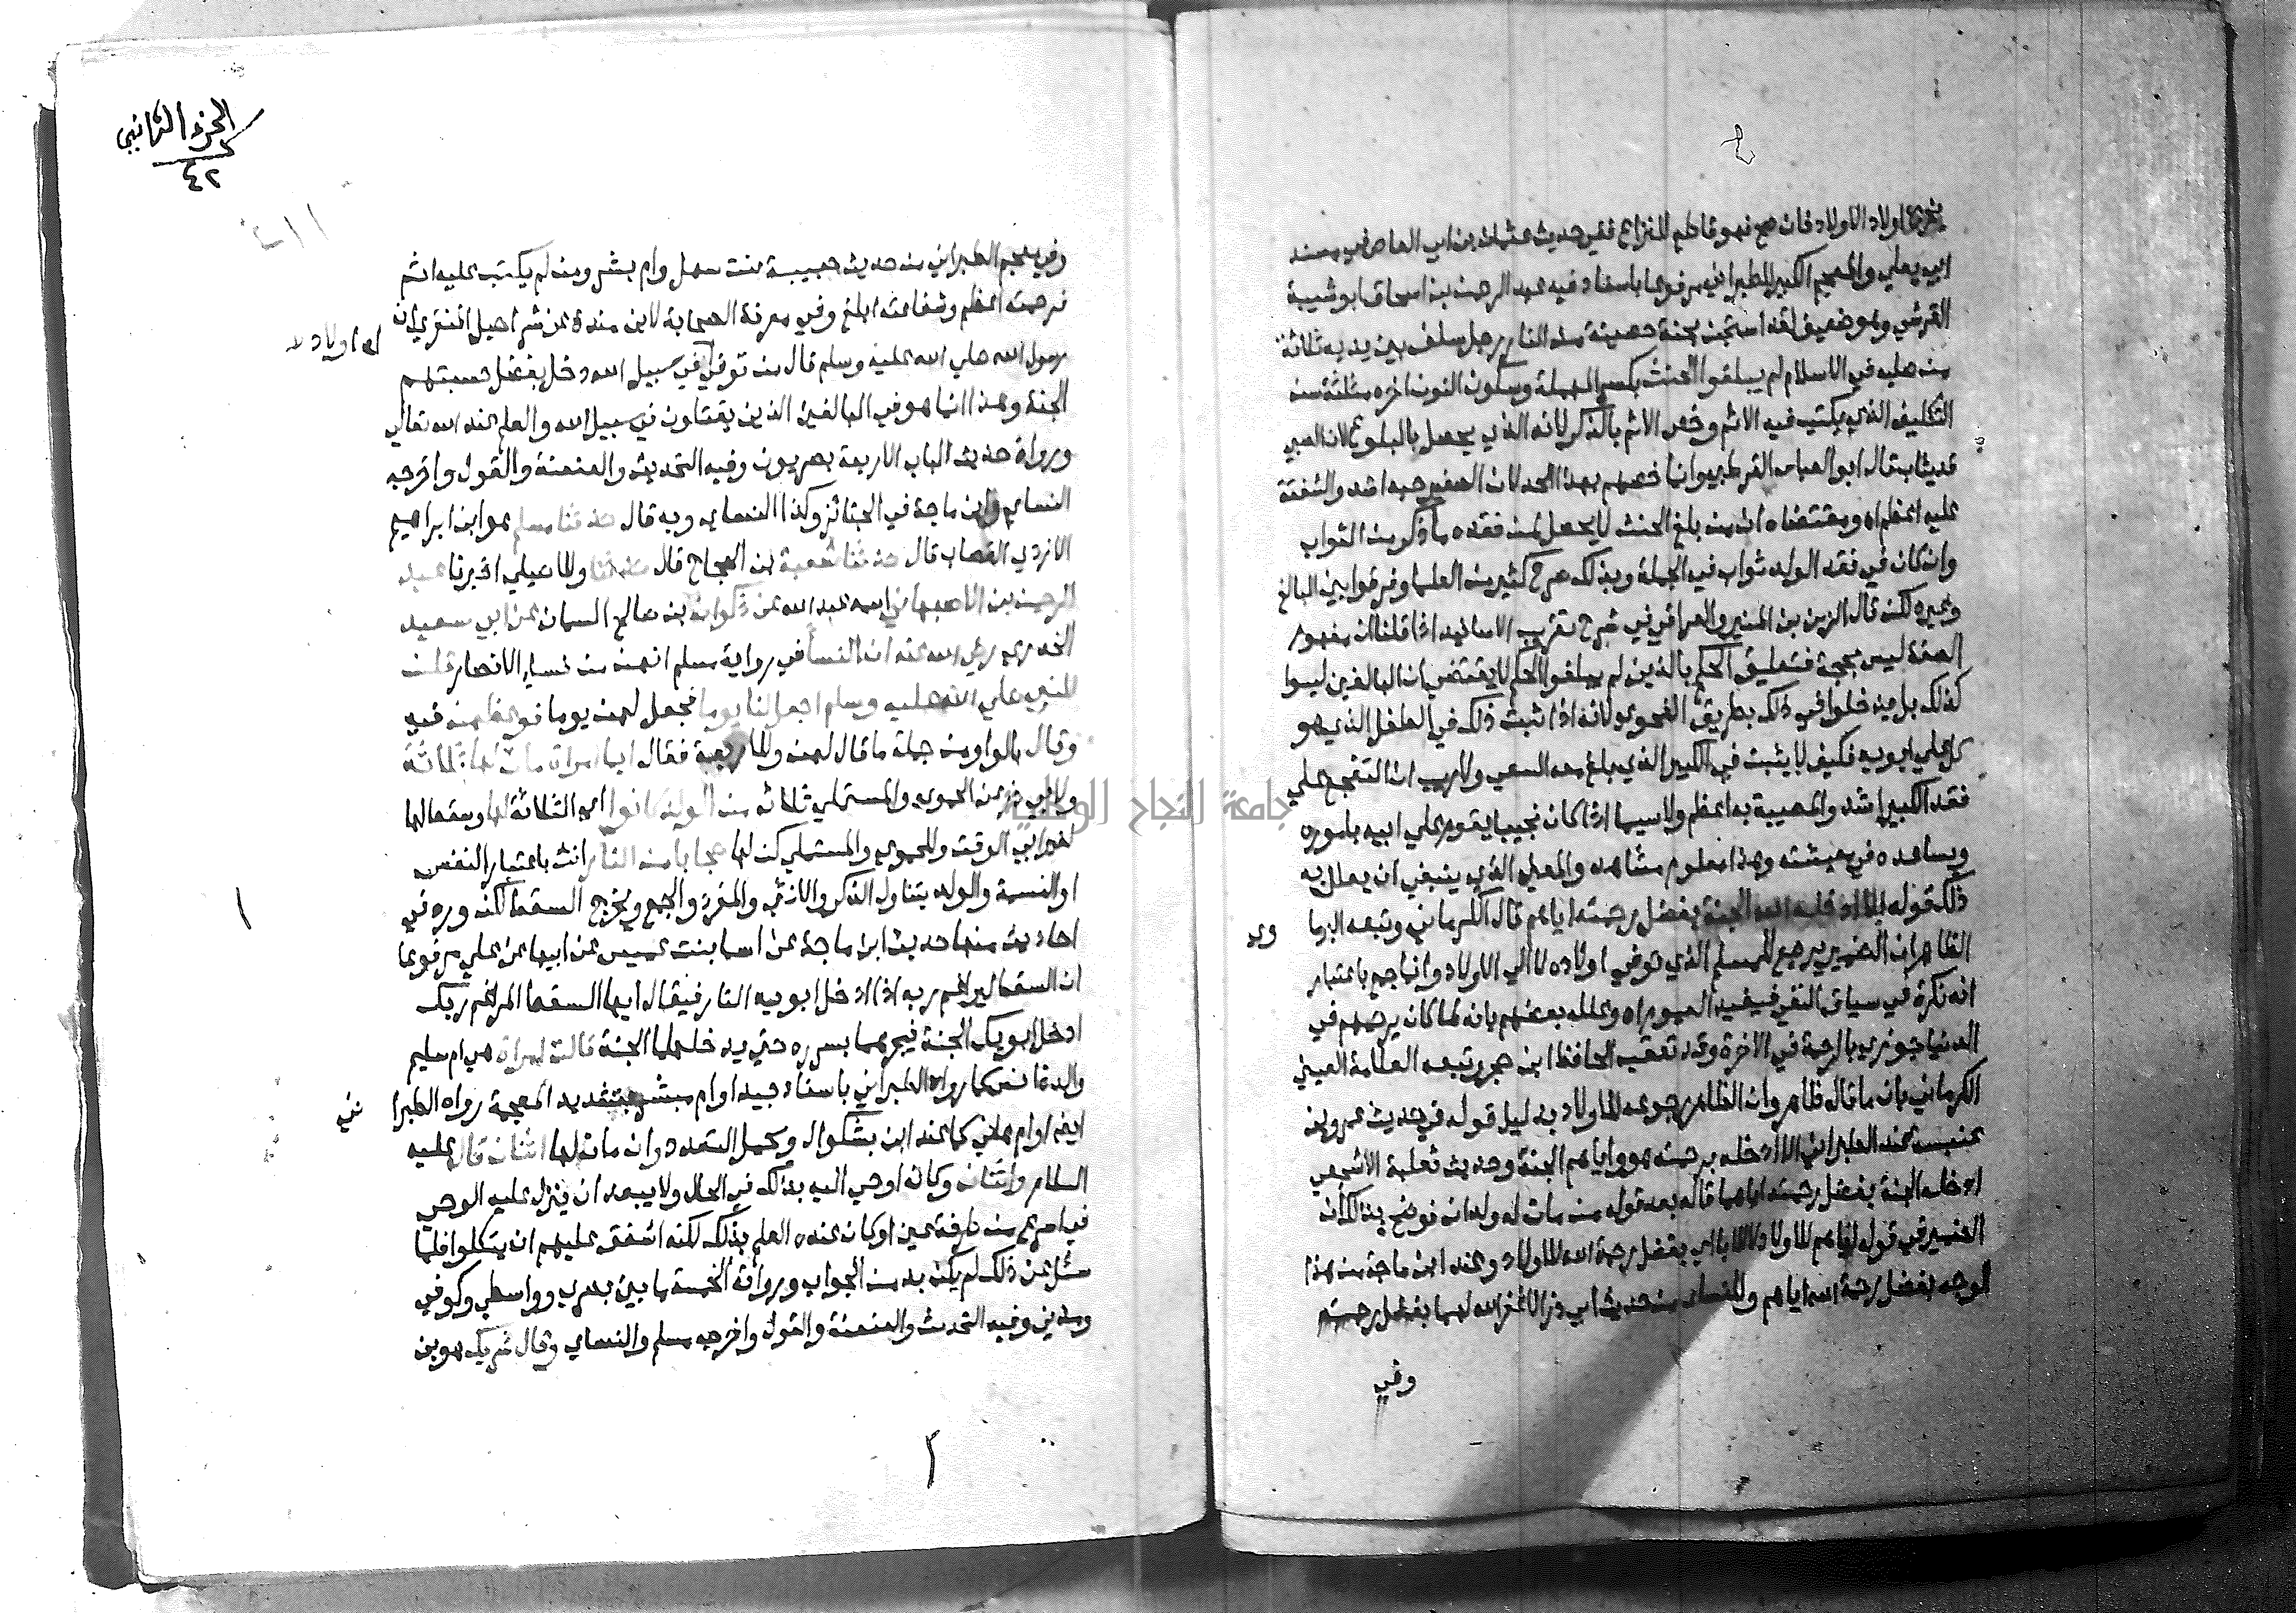 يخرج اولاد الاولاد فان صح فهو قاطع للنزاع ففي حديث عثمان بن ابي العاص في مسند
ابي يعلي والمعجم الكبير للطبراني مرفوعا باسناد فيه عبد الرحمن بن اسحاق ابو شيبة
القرشي وهو ضعيف لقد استجن بجنة حصينة من النار رجل سلف بين يديه ثلاثة
من صلبه في الاسلام لم يبلغوا الحنث بكسر المهملة وسكون النون اخره مثلثة سن
التكليف الذي يكتب فيه الاثم وخص الاثم بالذكر لانه الذي يحصل بالبلوغ لان الصبي
قد يثاب قال ابو العباس القرطبي وانما خصهم بهذا الحد لان الصغير حبه اشد والشفقة
عليه اعظم اه ومقتضاه ان من بلغ الحنث لا يحصل لمن فقده ما ذكر من الثواب
وان كان في فقد الولد ثواب في الجملة وبذلك صرح كثير من العلما وفرقوا بين البالغ
وغيره لكن قال الزين بن المنير والعراقي في شرح تقريب الاسانيد اذا قلنا ان مفهوم
الصفة ليس بحجة فتعليق الحكم بالذين لم يبلغوا الحلم لا يقتضي ان البالغين ليسوا
كذلك بل يدخلوا في ذلك بطريق الفحوي لانه اذا ثبت ذلك في الطفل الذي هو
كل علي ابويه فكيف لا يثبت في الكبير الذي بلغ معه السعي ولا ريب ان التفجع علي
فقد الكبير اشد والمصيبة به اعظم ولا سيما اذا كان نجيبا يقوم علي ابيه باموره
ويساعده في معيشته وهذا معلوم مشاهد والمعني الذي ينبغي ان يعلل به
ذلك قوله الا ادخله الله الجنة بفضل رحمته اياهم قال الكرماني وتبعه البرما
وي
الظاهر ان الضمير يرجع للمسلم الذي توفي اولاده لا الي الاولاد وانما جمع باعتبار
انه نكرة في سياق النفي فيفيد العموم اه وعلله بعضهم بانه لما كان يرحمهم في
الدنيا جوزي بالرحمة في الاخرة وقد تعقب الحافظ ابن حجر وتبعه العلامة العيني
الكرماني بان ما قال ظاهر وان الظاهر رجوعه للاولاد بدليل قوله في حديث عمرو بن
عنبسه عند الطبراني الا ادخله برحمته هو واياهم الجنة وحديث ثعلبة الاشجعي
ادخله الجنة بفضل رحمته اياهما قاله بعد قوله من مات له ولدان فوضح بذلك ان
الضمير في قوله اياهم للاولاد لا للابا اي بفضل رحمة الله للاولاد وعند ابن ماجة من هذا
الوجه بفضل رحمة الله اياهم وللنساي من حديث ابي ذر الا غفر الله لهما بفضل رحمته
وفي
الجزء الثاني
٤٢
وفي معجم الطبراني من حديث حبيبة بنت سهل وام بشر ومن لم يكتب عليه اثم
فرحمته اعظم وشفاعته ابلغ وفي معرفة الصحابة لابن مندة عن شراحيل المنقري ان
له اولاد
رسول الله صلي الله عليه وسلم قال من توفي في سبيل الله دخل بفضل حسبتهم
الجنة وهذا انما هو في البالغين الذين يقتلون في سبيل الله والعلم عند الله تعالي
ورواة حديث الباب الاربعة بصريون وفيه التحديث والعنعنة والقول واخرجه
النساي وابن ماجة في الجنائز وكذا النساي وبه قال حدثنا مسلم هو ابن ابراهيم
الازدي القصاب قال حدثنا شعبة بن الحجاج قال حدثنا وللاصيلي اخبرنا عبد
الرحمن بن الاصبهاني اسمه عبد الله عن ذكوان بن صالح السمان عن ابي سعيد
الخدري رضي الله عنه ان النسا في رواية مسلم انهن من نساء الانصار قلن
للنبي صلي الله عليه وسلم اجعل لنا يوما فجعل لهن يوما فوعظهن فيه
وقال بالواو من جملة ما قال لهن وللاربعة فقال ايما امراة مات لها ثلاثة
ولابي ذر عن الحموي والمستملي ثلاث من الولد كانوا اي الثلاثة لها وسقط لها
لغير ابي الوقت وللحموي والمستملي كن لها حجابا من النار انث باعتبار النفس
او النسمة والولد يتناول الذكر والانثي والمفرد والجمع ويخرج السقط لكن ورد في
احاديث منها حديث ابن ماجة عن اسما بنت عميس عن ابيها عن علي مرفوعا
ان السقط ليراغم ربه اذا ادخل ابويه النار فيقال ايها السقط المراغم ربك
ادخل ابويك الجنة فيجرهما بسرره حتي يدخلهما الجنة قالت امراة هي ام سليم
والدة انس كما رواه الطبراني باسناد جيد او ام مبشر بتشديد المعجمة رواه الطبرا
ني
ايضا او ام هاني كما عند ابن بشكوال ويحتمل التعدد وان مات لها اثنان قال عليه
السلام واثنان وكانه اوحي اليه بذلك في الحال ولا يبعد ان ينزل عليه الوحي
في اسرع من طرفة عين او كان عنده العلم بذلك لكنه اشفق عليهم ان يتكلوا فلما
سئل عن ذلك لم يكن بد من الجواب ورواته الخمسة ما بين بصري وواسطي وكوفي
ومدني وفيه التحدث والعنعنة والقول واخرجه مسلم والنساي وقال شريك هو بن
جامعة النجاح الوطنية